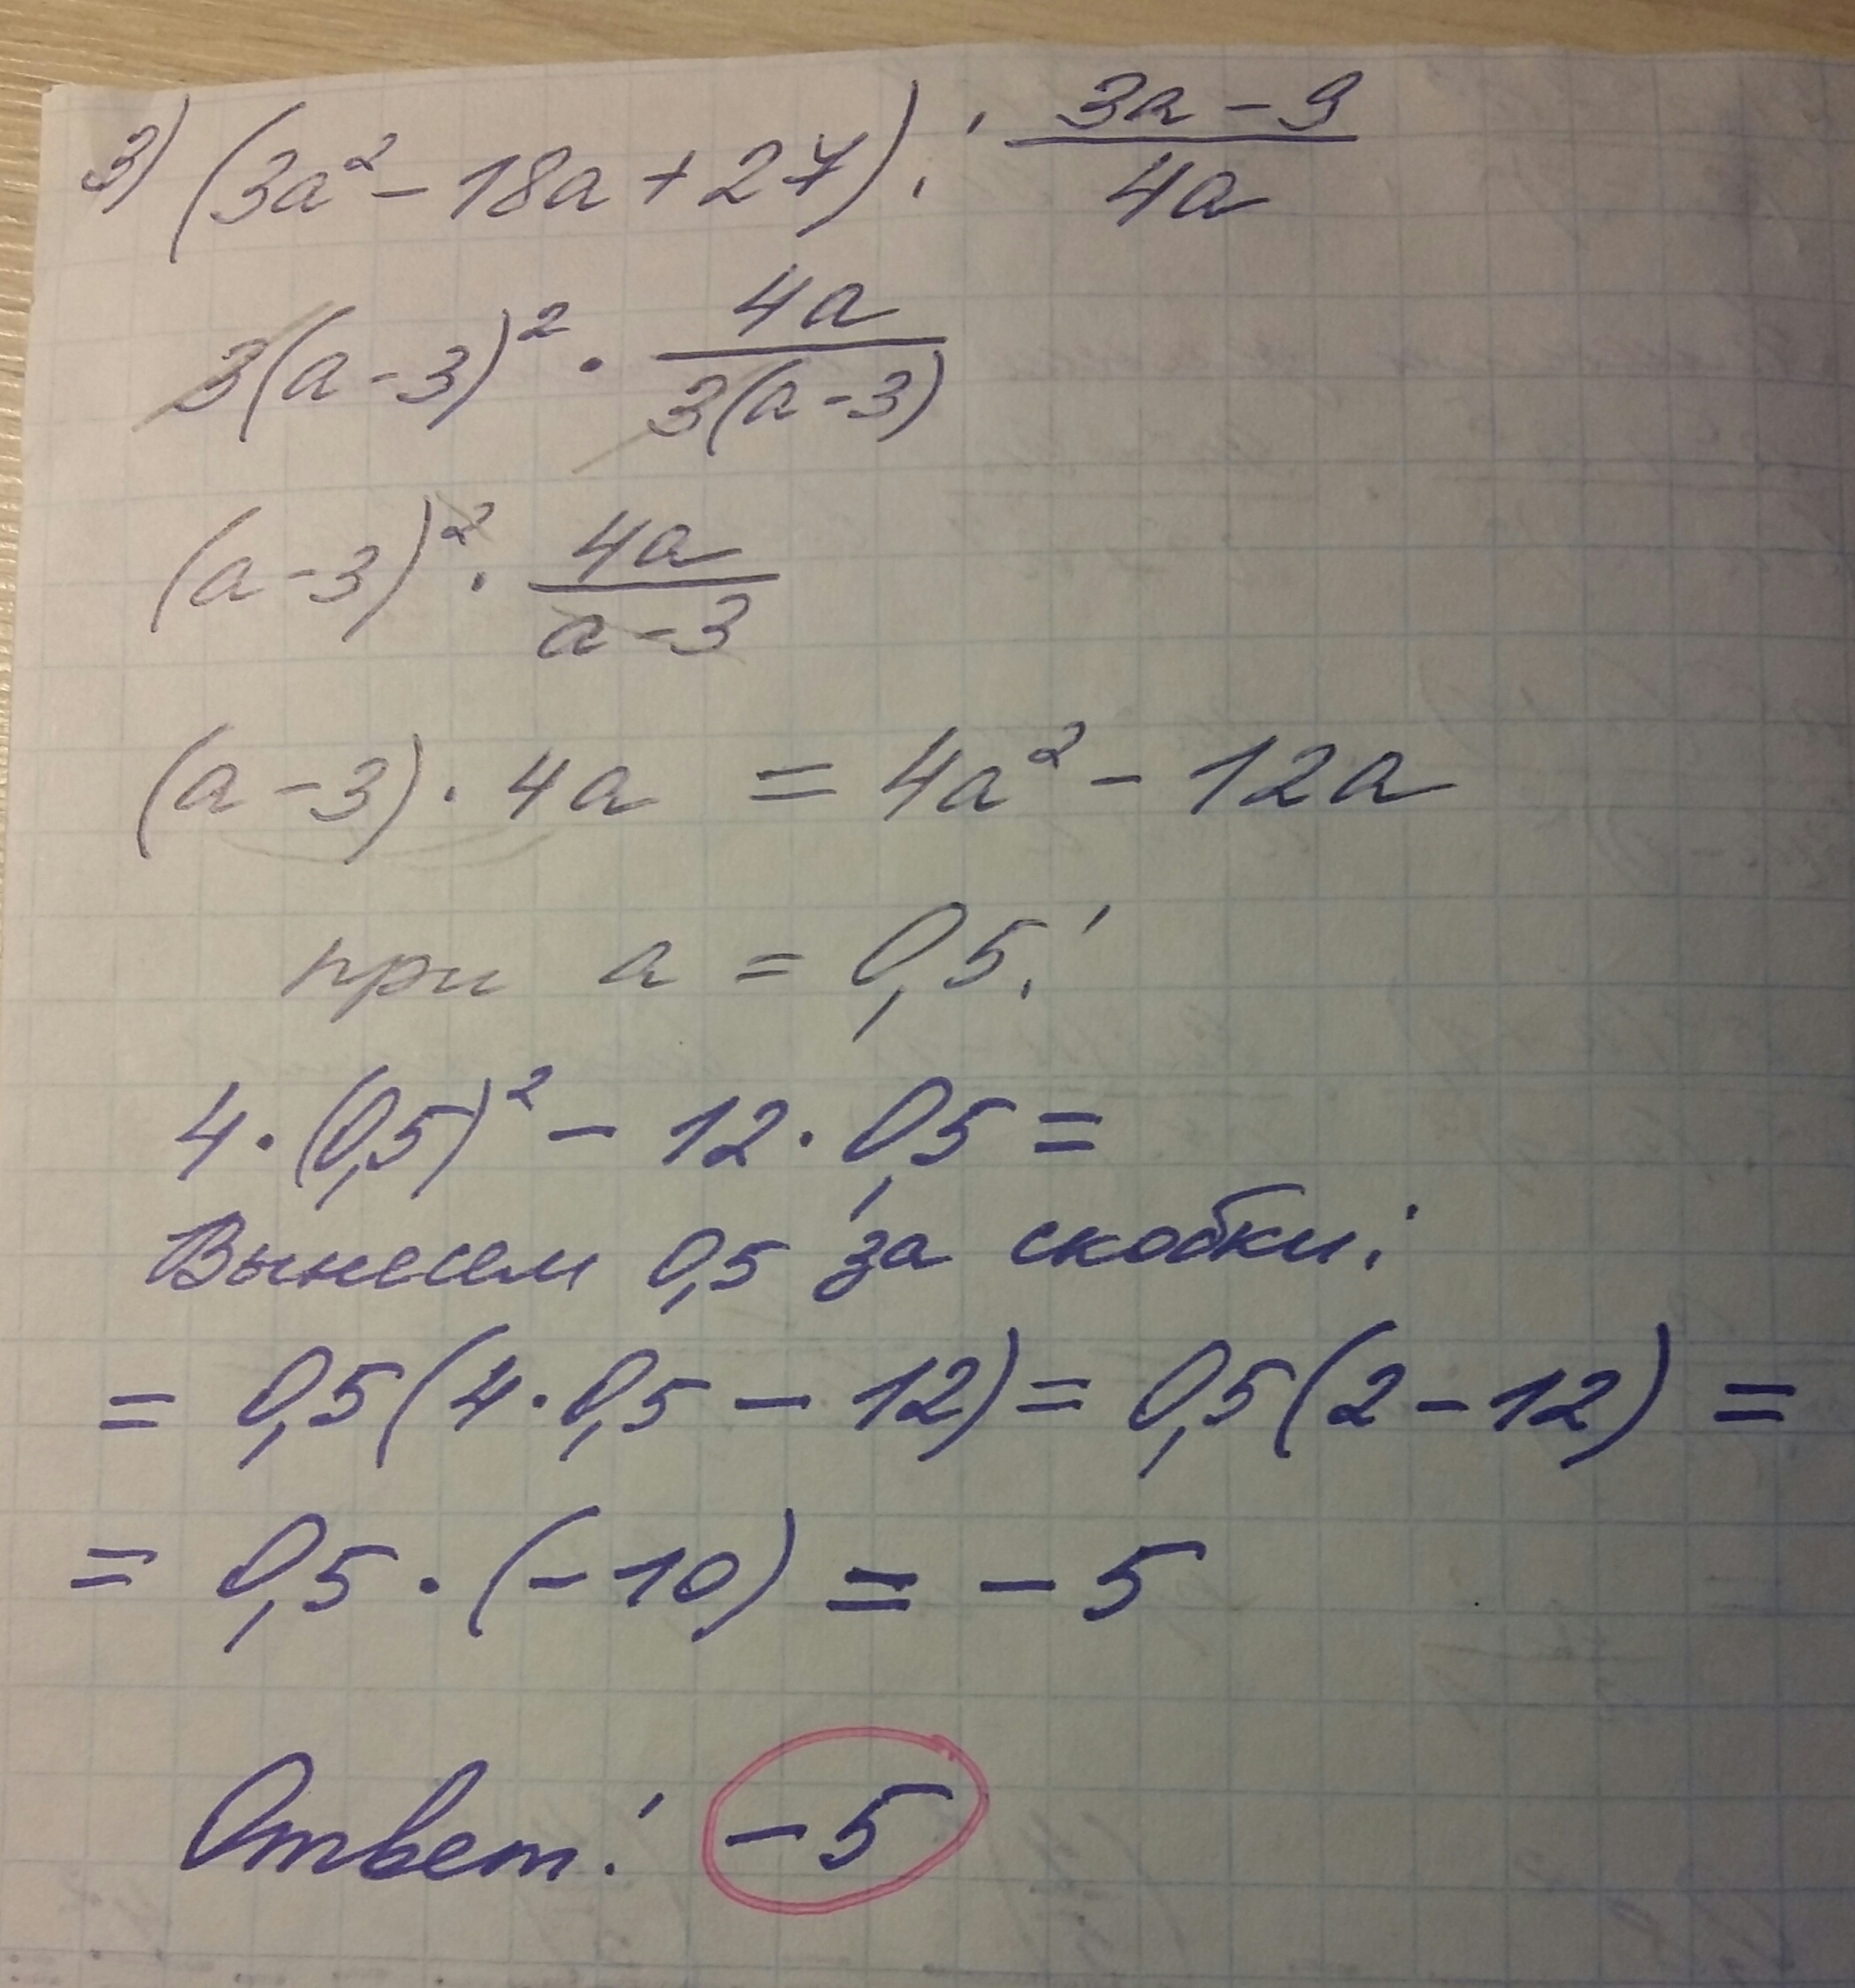 3) (3a² - 18a + 27) : (3a - 9)/(4a)
3(a - 3)² · 4a/(3(a - 3))
(a - 3)² · 4a/(a - 3)
(a - 3) · 4a = 4a² - 12a
при a = 0,5:
4 · (0,5)² - 12 · 0,5 =
Вынесем 0,5 за скобки:
= 0,5(4 · 0,5 - 12) = 0,5(2 - 12) =
= 0,5 · (-10) = -5
Ответ: -5